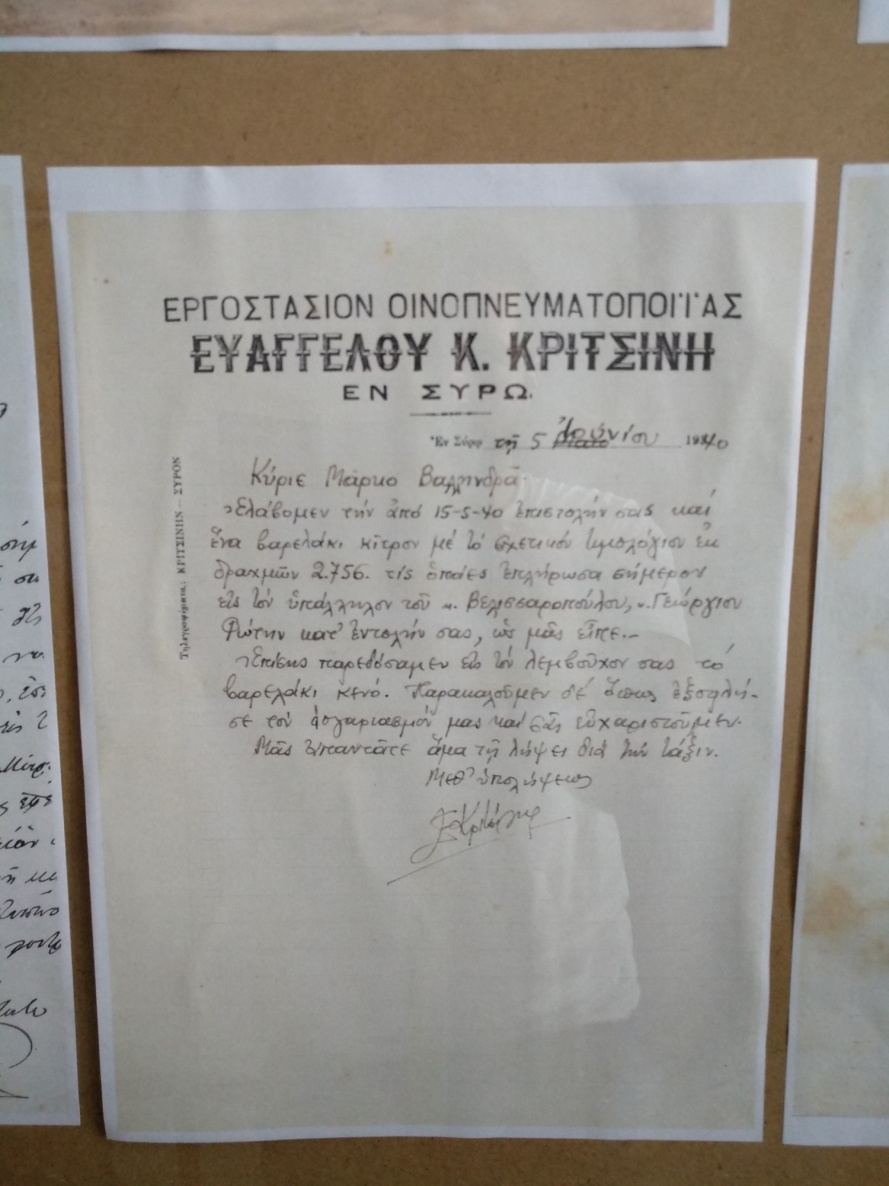 ΕΡΓΟΣΤΑΣΙΟΝ ΟΙΝΟΠΝΕΥΜΑΤΟΠΟΙΪΑΣ
ΕΥΑΓΓΕΛΟΥ Κ. ΚΡΙΤΣΙΝΗ
ΕΝ ΣΥΡΩ.
Ἐν Σύρῳ τῇ 5 Ἰουνίου 1940
Τηλεγραφήματα: ΚΡΙΤΣΙΝΗΝ — ΣΥΡΟΝ
Κύριε Μάρκο Βαλληνδρᾶ
Ἐλάβομεν τήν ἀπό 15-5-40 ἐπιστολήν σας καί
ἕνα βαρελάκι κίτρον μέ τό σχετικόν τιμολόγιον ἐκ
δραχμῶν 2.756. τίς ὁποίες ἐπλήρωσα σήμερον
εἰς τόν ὑπάλληλον τοῦ κ. Βελισσαροπούλου, κ. Γεώργιον
Φώτην κατ' ἐντολήν σας, ὡς μᾶς εἶπε.-
Ἐπίσης παρεδόσαμεν εἰς τόν λεμβοῦχον σας τό
βαρελάκι κενό. Παρακαλοῦμεν ὅπως ἐξοφλή-
σε τόν λογαριασμόν μας καί σᾶς εὐχαριστοῦμεν.
Μᾶς ἀπαντᾶτε ἅμα τῇ λήψει διά τήν τάξιν.
Μεθ' ὑπολήψεως